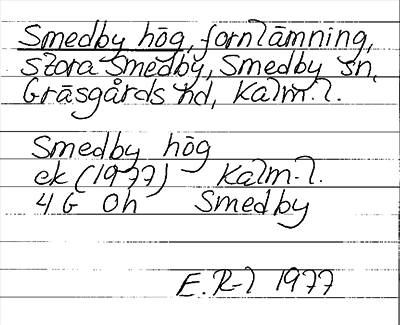 Smedby hög, fornlämning,
Stora Smedby, Smedby sn,
Gräsgårds hd, Kalm.l.
Smedby hög
ek (1977) Kalm.l.
4 G 0h Smedby
E. R-l 1977